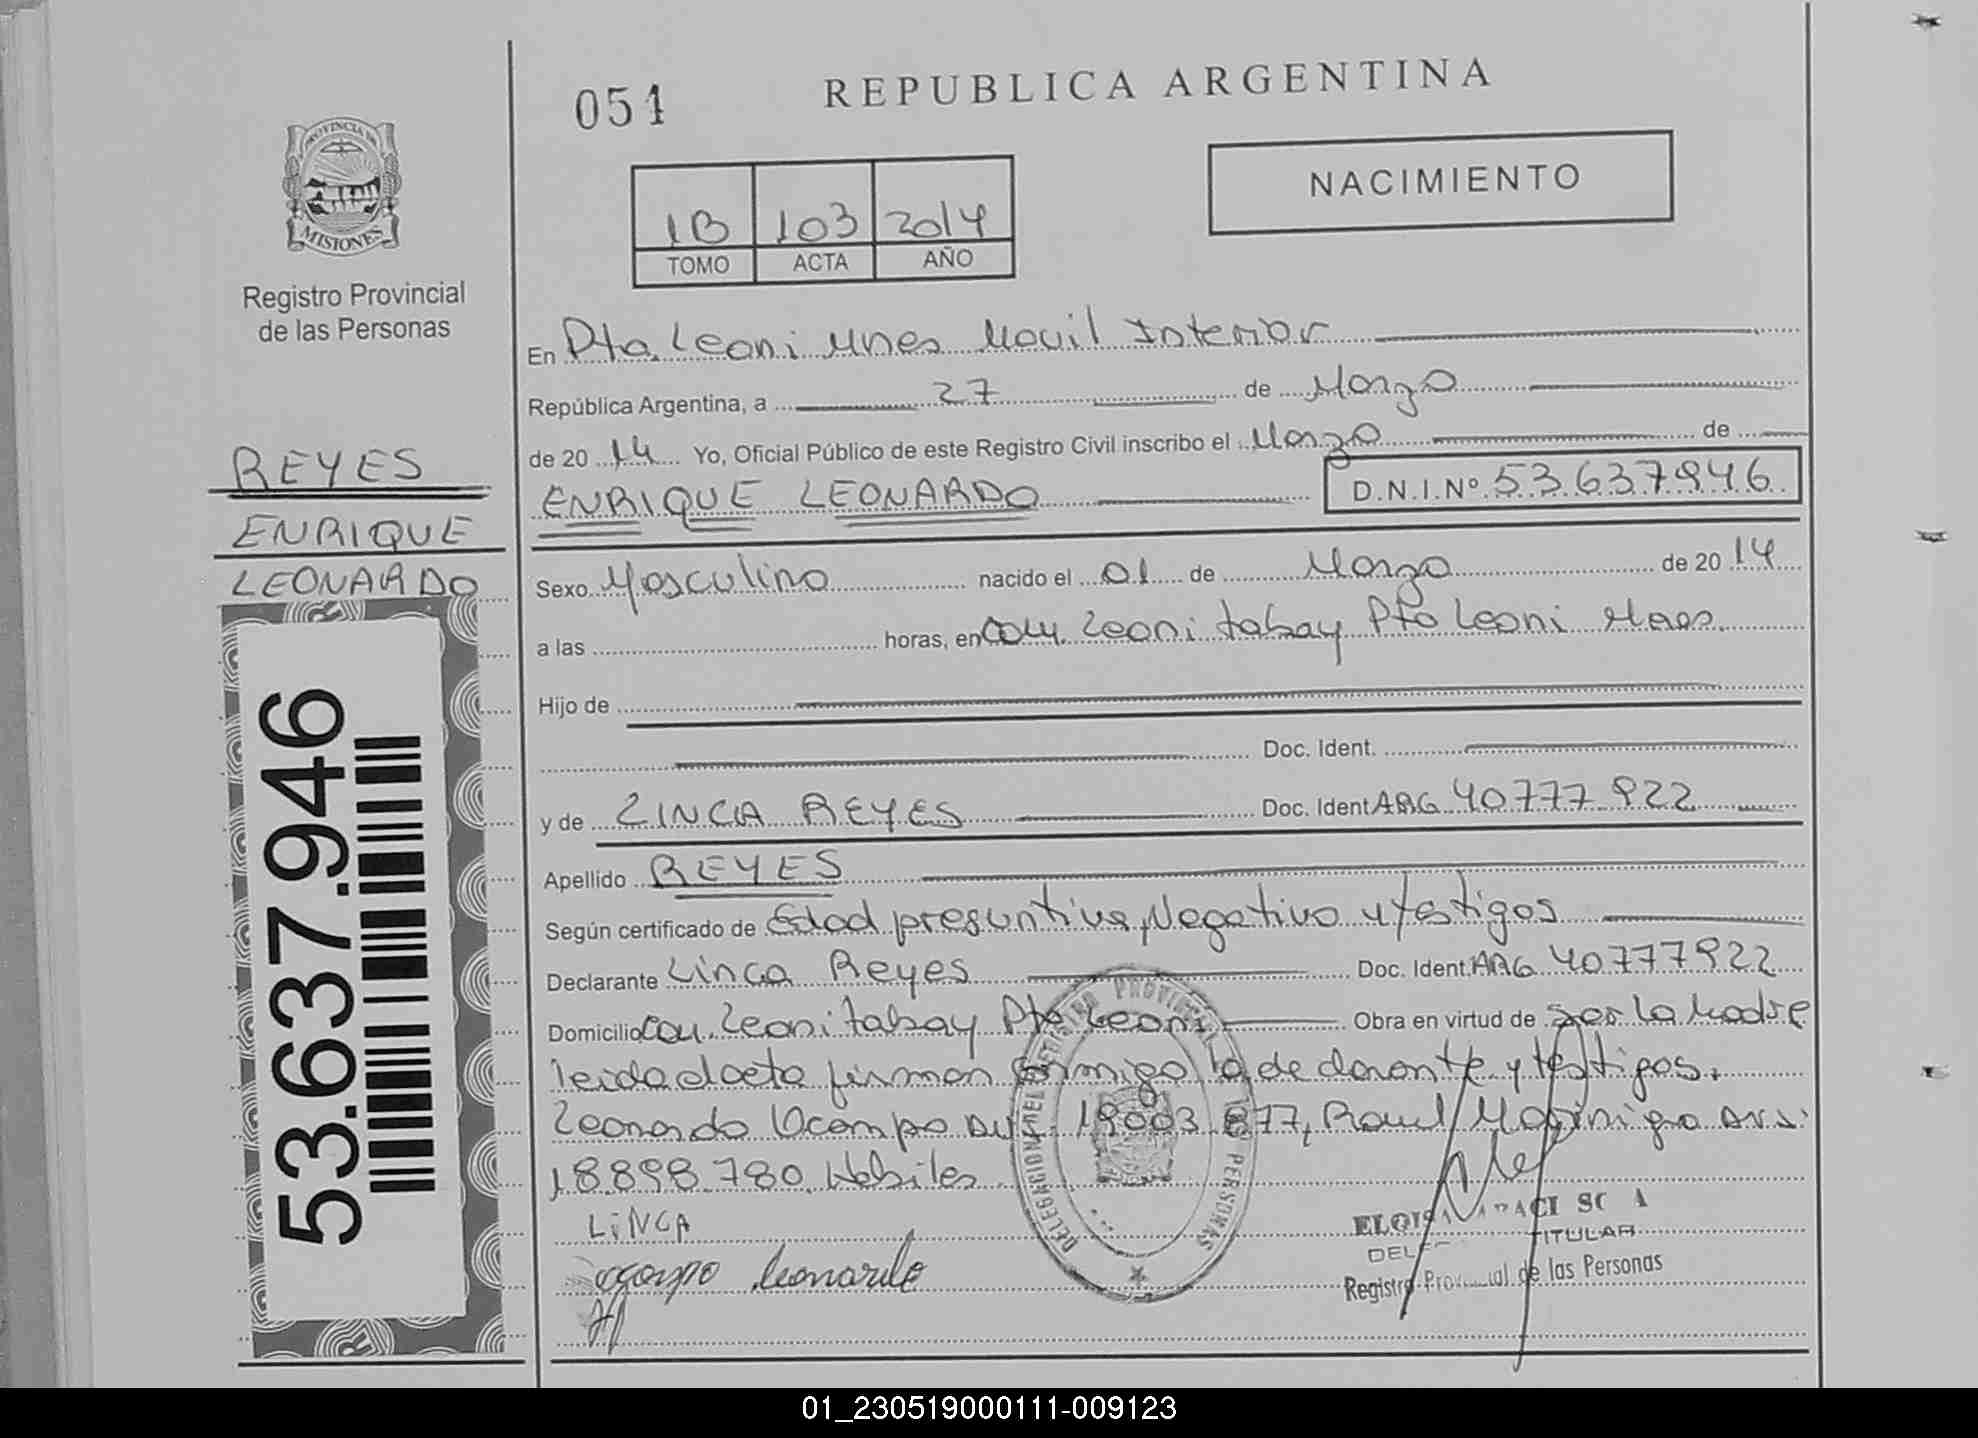 054
REPUBLICA ARGENTINA
PROVINCIA DE
MISIONES
Registro Provincial
de las Personas
NACIMIENTO
1B 103 2014
TOMO ACTA AÑO
En Pto Leoni Mnes Movil Interior
República Argentina, a 27 de Marzo
de 2014 Yo, Oficial Público de este Registro Civil inscribo el Marzo de
ENRIQUE LEONARDO D.N.I.Nº 53.637.946
REYES
ENRIQUE
LEONARDO
53.637.946
Sexo Masculino nacido el 01 de Marzo de 2014
a las horas, en Leoni tabay Pto Leoni
Hijo de
Doc. Ident.
y de LINCA REYES Doc. Ident ARG 40777922
Apellido REYES
Según certificado de Edad presuntiva, Negativo y testigos
Declarante Linca Reyes Doc. Ident. ARG 40777922
Domicilio Leoni tabay Pto Leoni Obra en virtud de ser la Madre
leida el acta firman conmigo la declarante y testigos.
Leonardo Ocampo 19003.877, Raul
18.898.780. Habiles
LiNCA
ocampo leonardo
DELEGACION REGISTRO PROVINCIAL PERSONAS
TITULAR
Registro Provincial de las Personas
01_230519000111-009123